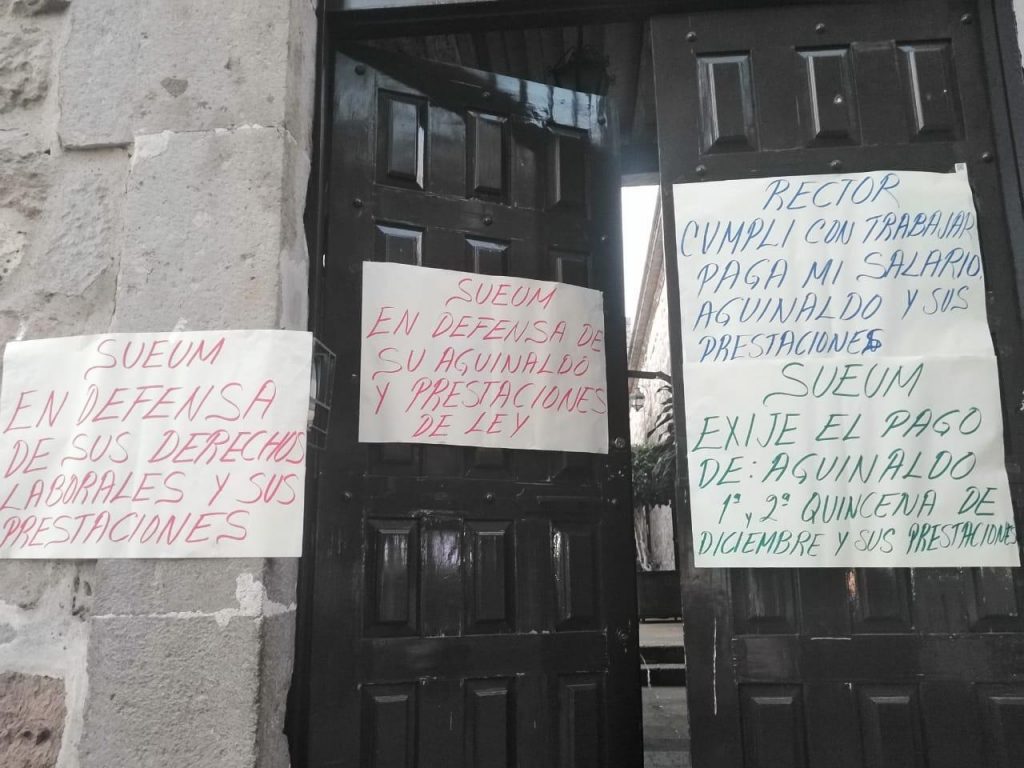 SUEUM
EN DEFENSA
DE SUS DERECHOS
LABORALES Y SUS
PRESTACIONES
SUEUM
EN DEFENSA DE
SU AGUINALDO
Y PRESTACIONES
DE LEY
RECTOR
CUMPLI CON TRABAJAR
PAGA MI SALARIO,
AGUINALDO Y SUS
PRESTACIONES
SUEUM
EXIJE EL PAGO
DE: AGUINALDO
1ª y 2ª QUINCENA DE
DICIEMBRE Y SUS PRESTACIONES